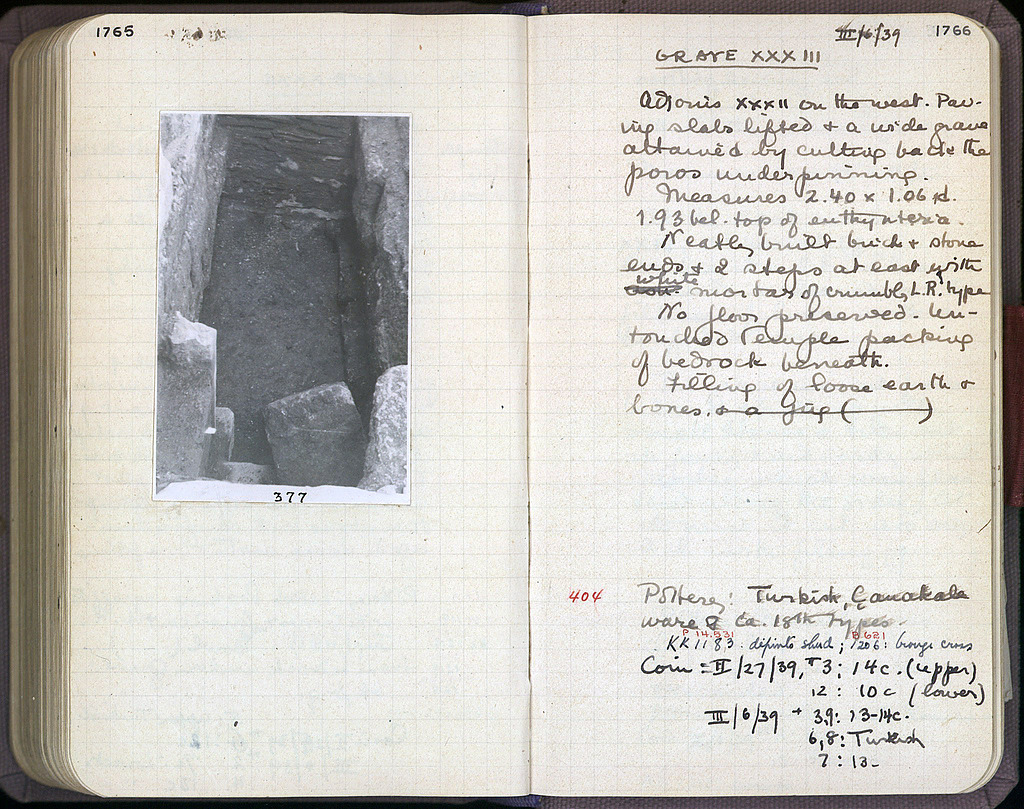 1765
377
III/6/39 1766
GRAVE XXXIII
Adjoins XXXII on the west. Pav-
ing slabs lifted + a wide grave
attained by cutting back the
poros underpinning.
Measures 2.40 x 1.06 d.
1.93 bel. top of euthynteria.
Neatly built brick + stone
ends + 2 steps at east with
white
mortar of crumbly L.R. type
No floor preserved. Un-
touched Temple packing
of bedrock beneath.
Filling of loose earth +
bones. + a jug ( )
404 Pottery: Turkish, Canakale
ware & ca. 18th types.
P 14,531 B 681
KK 1183. dipinto sherd; 1206: bronze cross
Coin: II/27/39, #3: 14c. (upper)
12: 10c (lower)
III/6/39 + 3,9: 13-14c.
6,8: Turkish
7: 13-